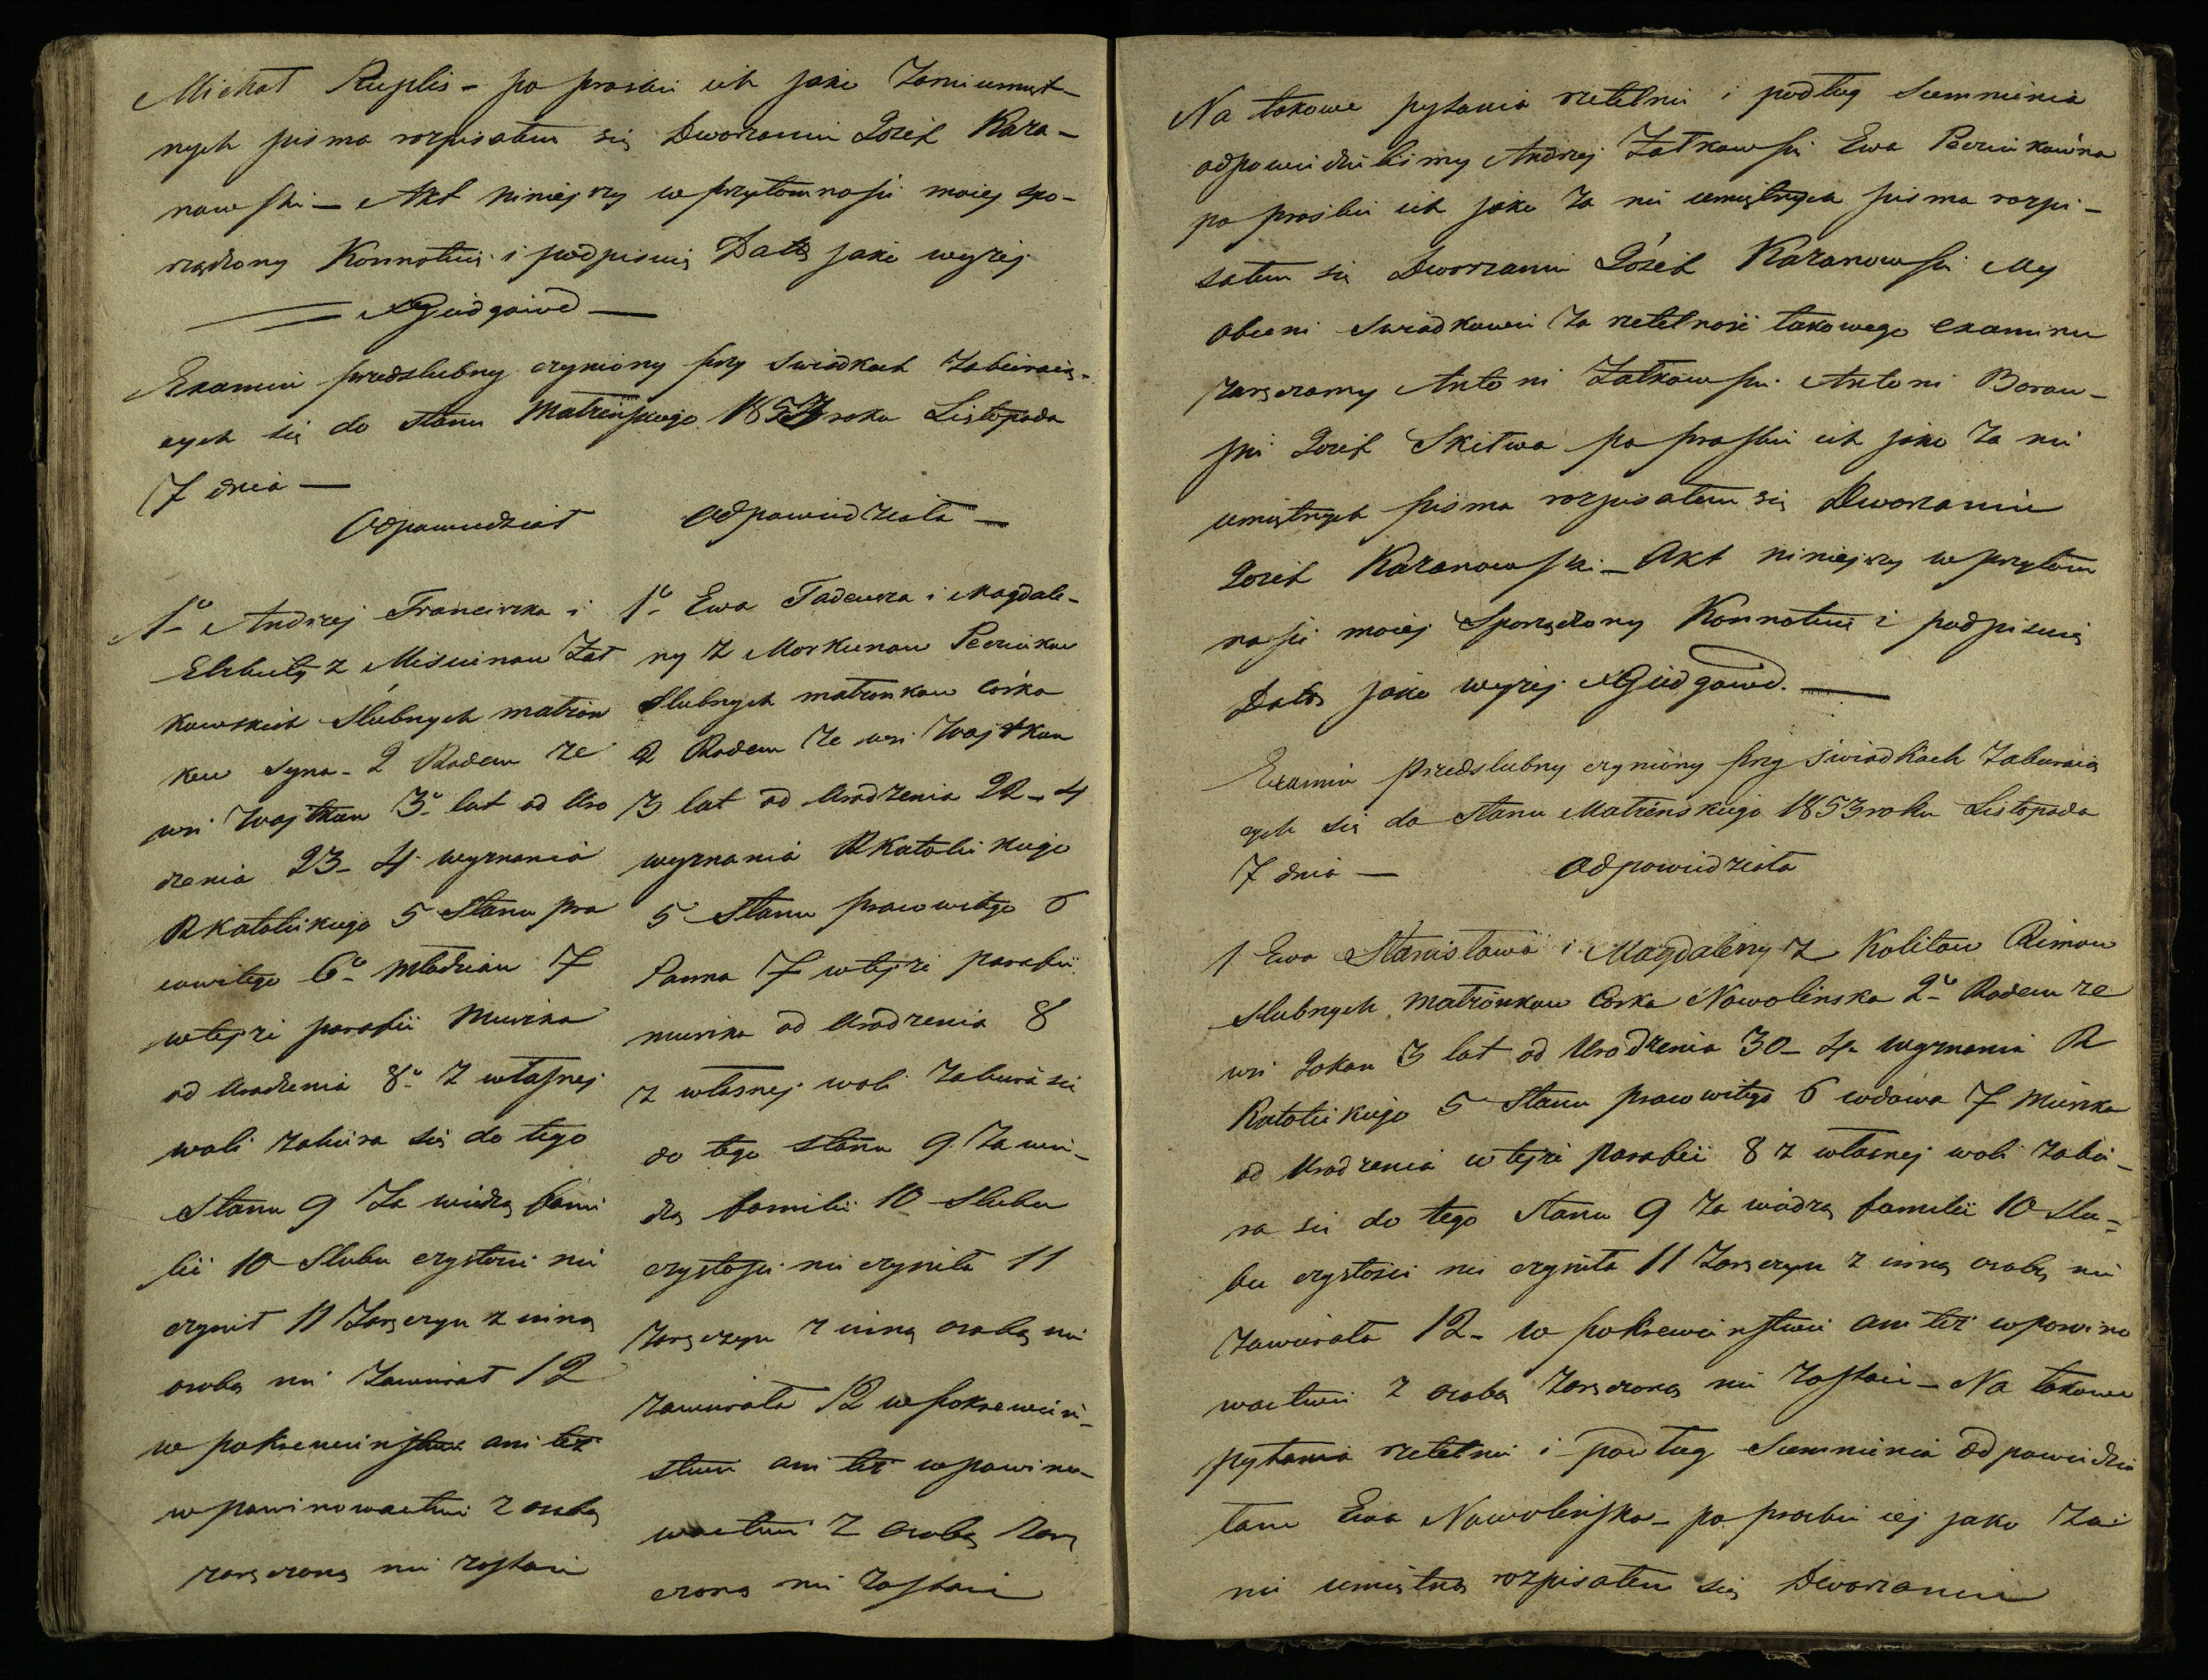 Michał Ruplis - po prosbie ich jako za nieumiet-
nych pisma rozpisałem się Dworzanin Jozef Kaza-
nowski - Akt niniejszy w przytomnosci moiey spo-
rządzony Konnotuię i podpisuię Data jako wyżej
Examin przedslubny czyniony przy swiadkach zabieraią-
cych się do stanu Matżeńskiego 1853 roku Listopada
7 dnia -
Odpowiedział Odpowiedziała -
1° Andrzej Franciszka i
Elzbiety z Misiunow Zał
kowskich Slubnych małżon
kow Syna - 2 Rodem ze
wsi Wojtkun 3° lat od Uro
dzenia 23 - 4 wyznania
RKatolickiego 5 Stanu pra
cowitego 6° Młodzian 7
w tejże parafii Mieszka
od Urodzenia 8° z własnej
woli zabiera się do tego
Stanu 9 Za wiedzą fami
lii 10 Slubu czystosci nie
czynił 11 Zaręczyn z inną
osobą nie Zawierał 12
w pokrewieństwie ani też
w powinowactwie z osobą
zaręczoną nie zostaie
1° Ewa Tadeusza i Magdale-
ny z Morkunow Pecziukow
Slubnych matżonkow Córka
2 Rodem ze wsi Wojtkun
3 lat od Urodzenia 22 - 4
wyznania RKatolickiego
5 Stanu pracowitego 6
Panna 7 w tejże parafii
mieszka od Urodzenia 8
z własnej woli zabiera sie
do tego stanu 9 Za wie-
dzą familii 10 Slubu
czystosci nie czyniła 11
Zaręczyn z inną osobą nie
zawierała 12 w pokrewień-
stwie ani też w powino-
wactwie z osobą zarę
czoną nie zostaie
Na takowe pytania rzetelnie i podług Sumnienia
odpowiedzielismy Andrzej Zatkowski Ewa Pecziukowna
po prosbie ich jako za nie umiętnych pisma rozpi-
sałem się Dworzanin Józef Kazanowski My
obecni Swiadkowie za rzetelność takowego examinu
zaręczamy Antoni Zatkowski Antoni Borow-
ski Jozef Skitwa po prosbie ich jako za nie
umiętnych pisma rozpisałem się Dworzanin
Jozef Kazanowski - Akt niniejszy w przytom
nosci moiej Sporządzony Konnotuię i podpisuię
Data jako wyżej
Examin przedslubny czyniony przy świadkach zabieraią
cych się do Stanu Matżenskiego 1853 roku Listopada
7 dnia - Odpowiedziała
1 Ewa Stanisława i Magdaleny z Kolitow Rimow
slubnych matżonkow Corka Nowolinska 2° Rodem ze
wsi Jokan 3 lat od Urodzenia 30 - 4 wyznania R
Katolickiego 5 Stanu pracowitego 6 wdowa 7 Mieszka
od Urodzenia w tejże Parafii 8 z własnej woli zabie-
ra sie do tego Stanu 9 za wiedzą familii 10 Slu-
bu czystości nie czyniła 11 Zaręczyn z inną osobą nie
zawierała 12 - w pokrewienstwie ani też w powino
wactwie z osobą zaręczoną nie zostaie - Na takowe
pytania rzetelnie i podług Sumnienia odpowiedzia
łam Ewa Nowolinska - po prosbie iej jako za
nie umiętną rozpisałem się Dworzanin